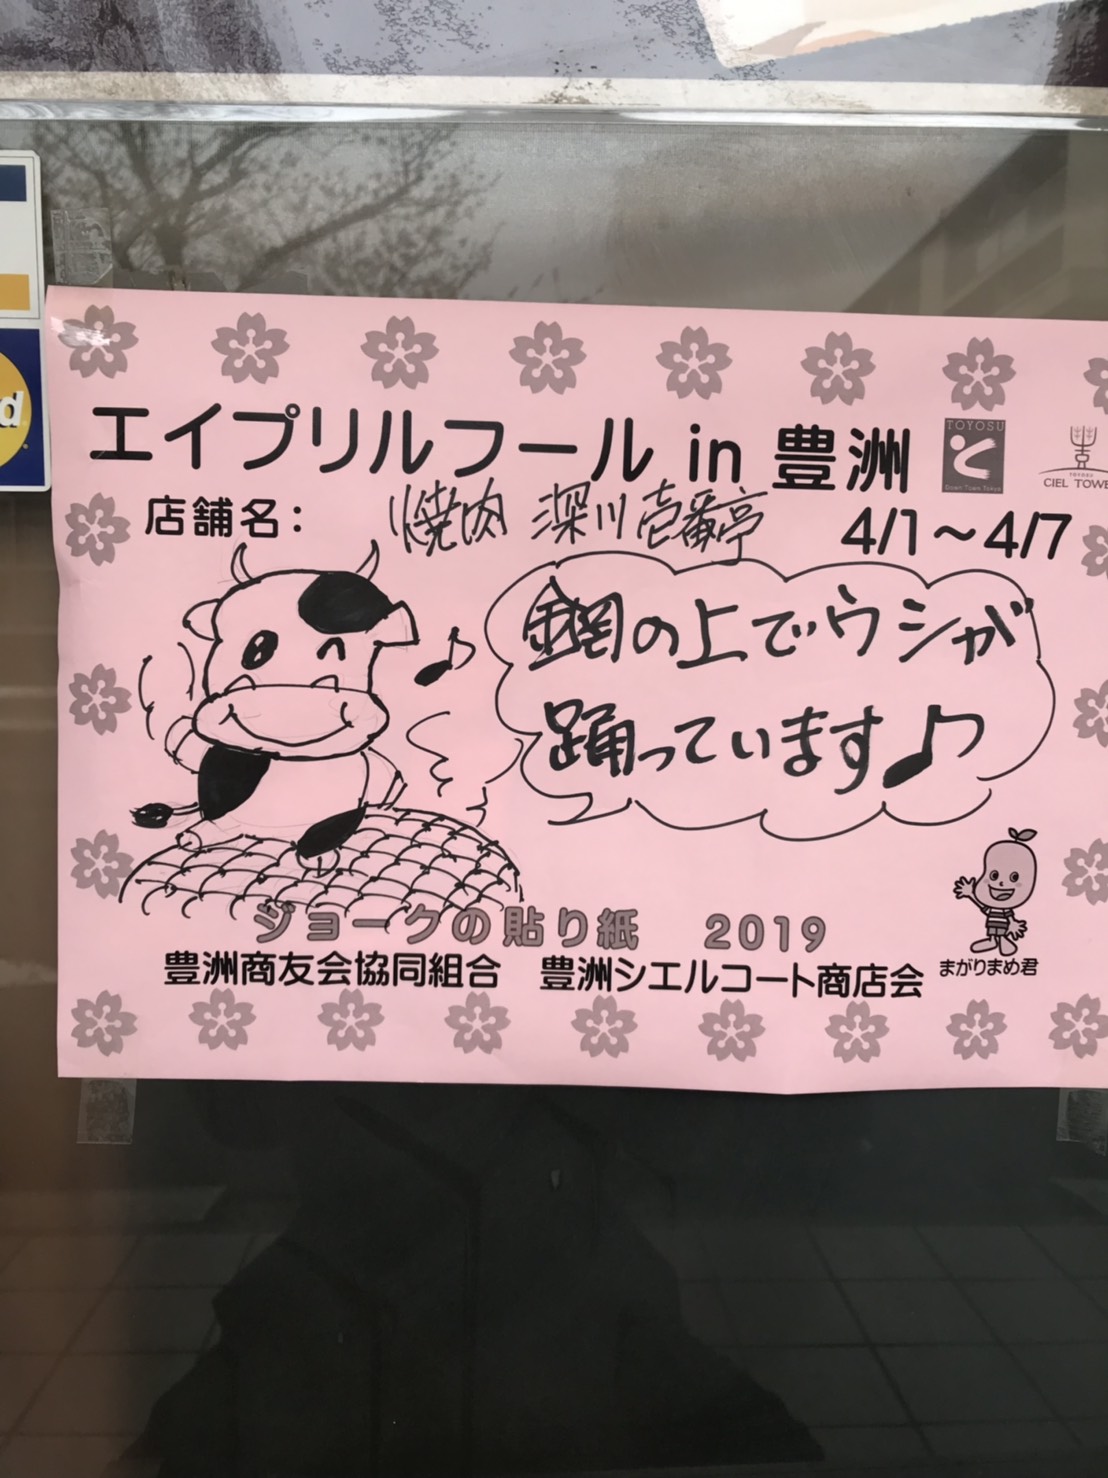 エイプリルフール in 豊洲
TOYOSU
CIEL TOWE
店舗名: 焼肉 深川壱番亭
4/1～4/7
d
鋼の上でウシが
踊っています♪
ジョークの貼り紙 2019
豊洲商友会協同組合 豊洲シエルコート商店会
まがりまめ君